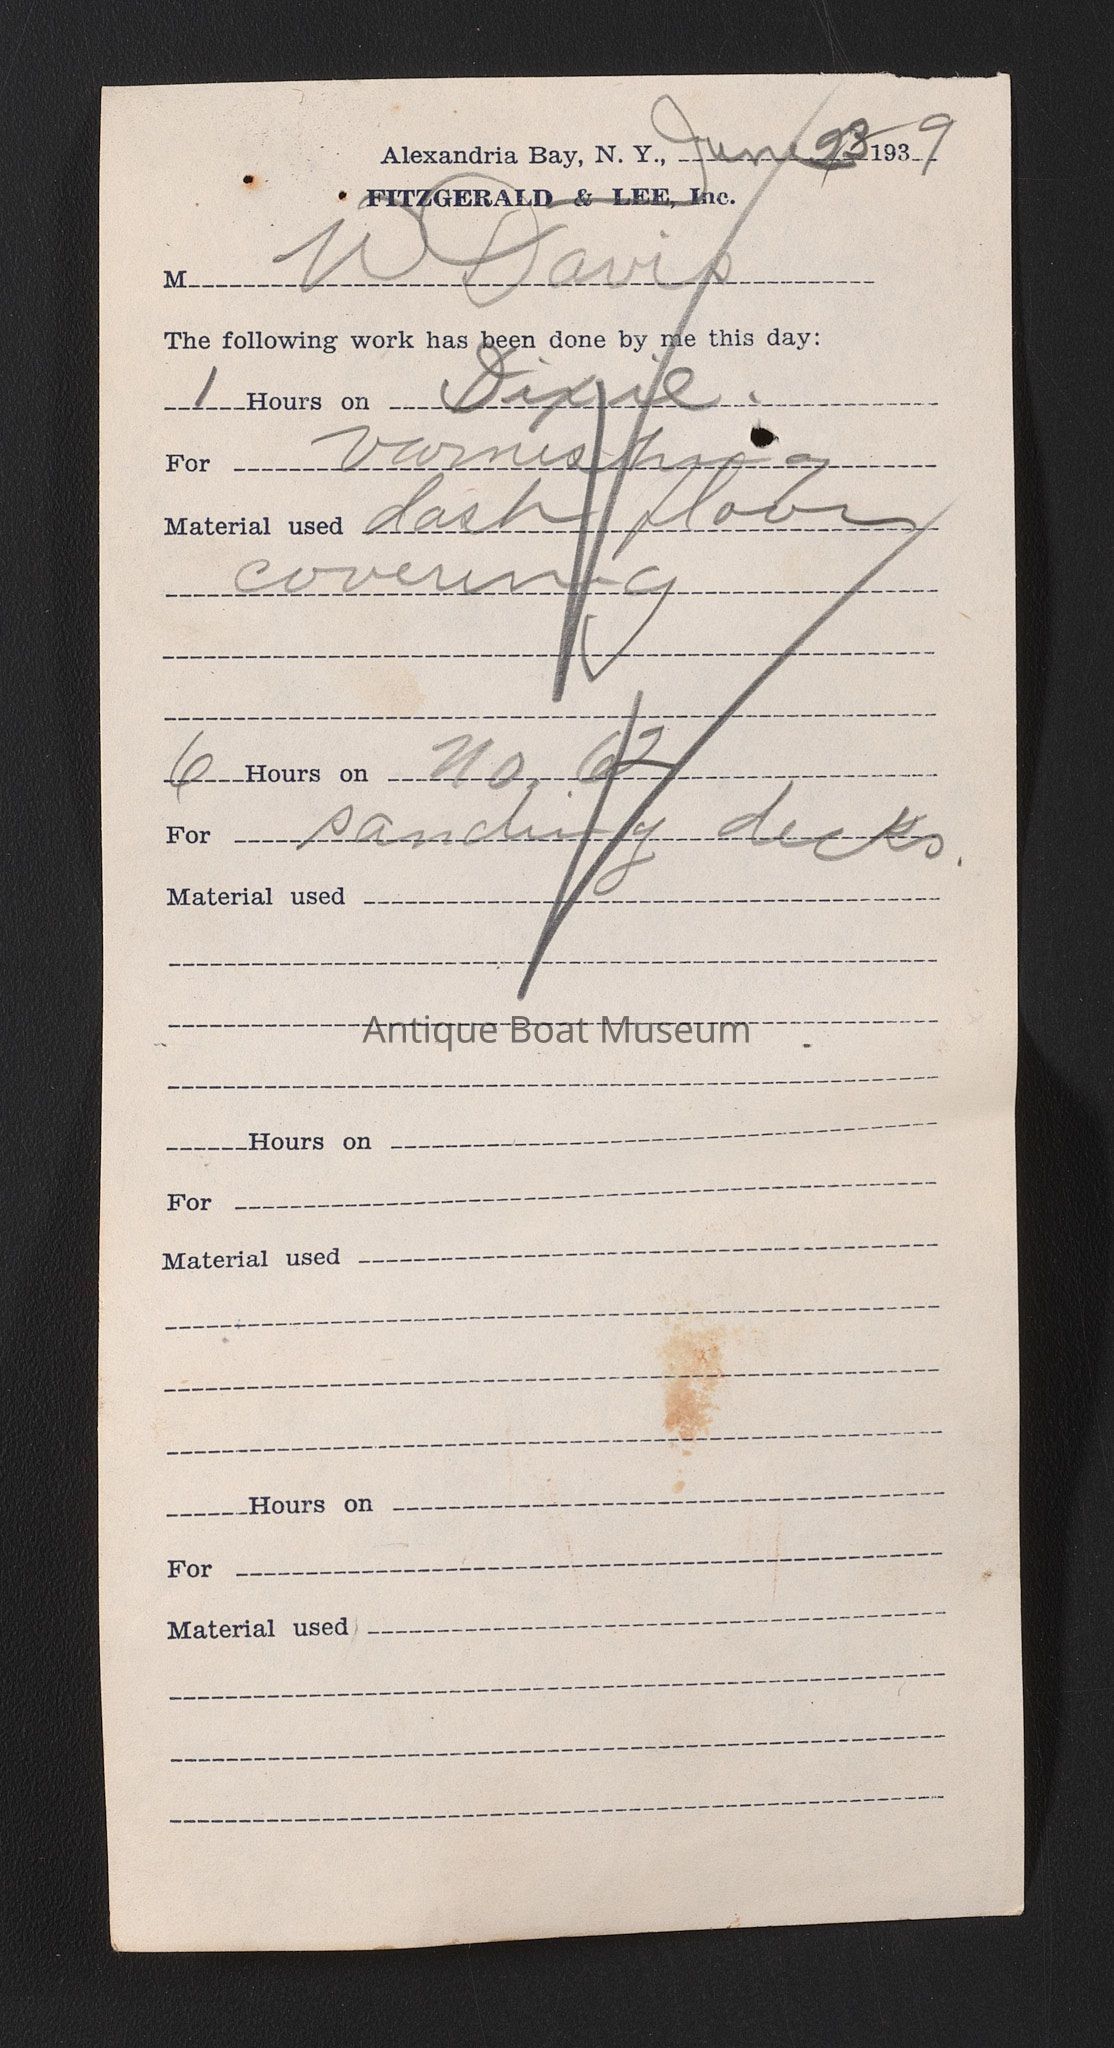 Alexandria Bay, N. Y., June 23 1939
FITZGERALD & LEE, Inc.
M W Davis
The following work has been done by me this day:
1 Hours on Dixie.
For varnishing
Material used dash floor
covering
6 Hours on No. 62
For sanding decks.
Material used
Antique Boat Museum
Hours on
For
Material used
Hours on
For
Material used